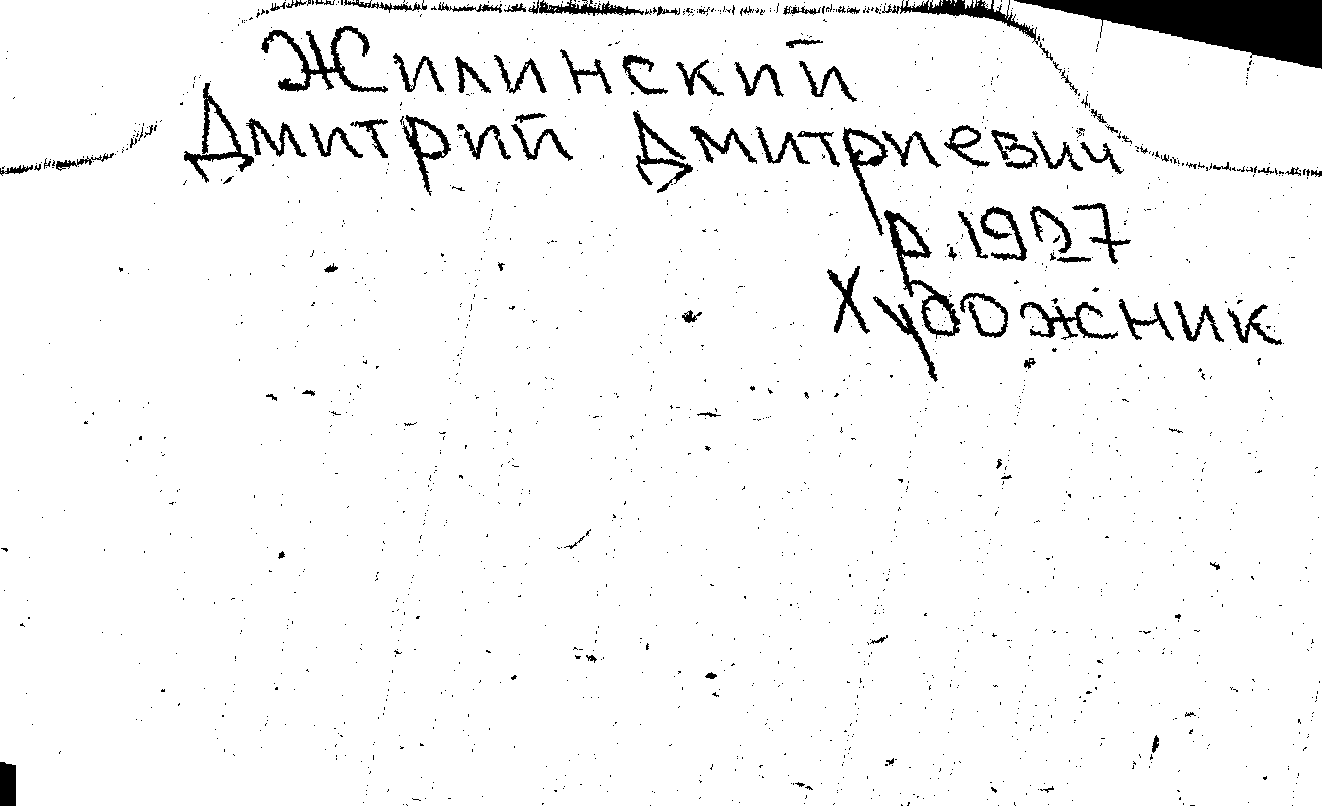 Жилинский
Дмитрий Дмитриевич
р. 1927
Художник